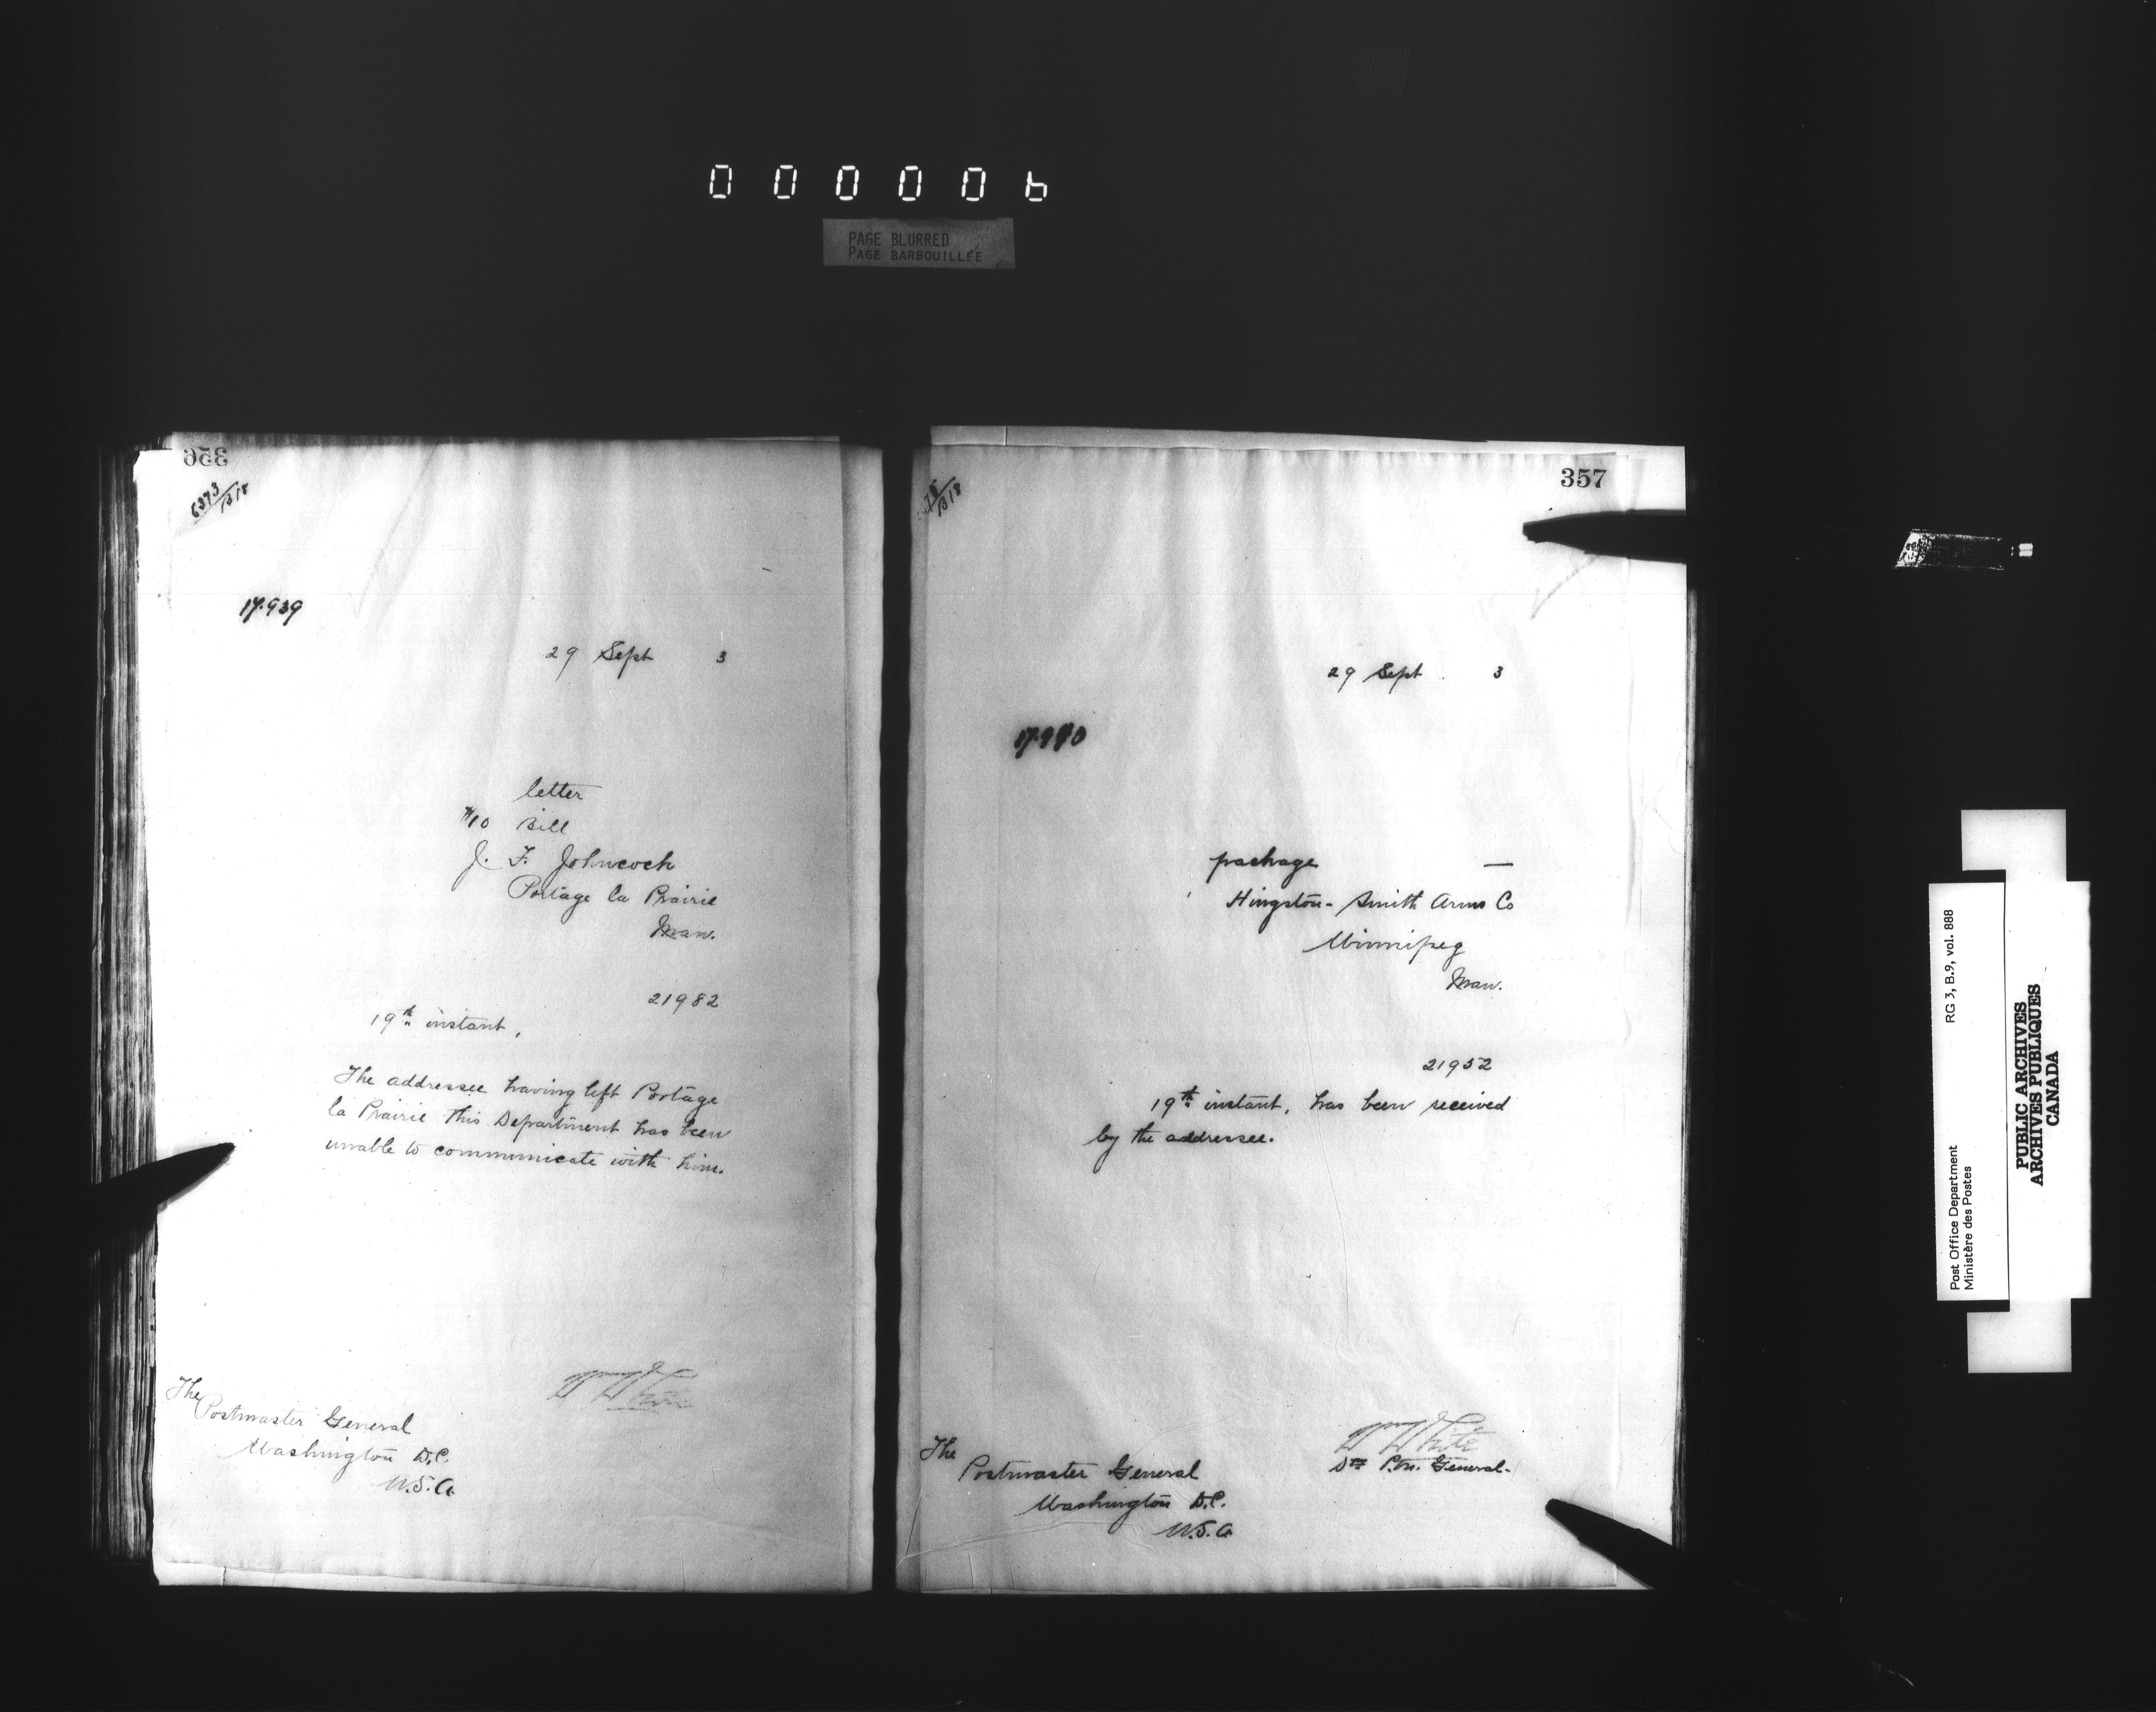 000006
PAGE BLURRED
PAGE BARBOUILLÉE
356
6373/B18
17.939
29 Sept 3
letter
$10 Bill
J. F. Johncock
Portage la Prairie
Man.
21982
19th instant,
The addressee having left Portage
la Prairie this Department has been
unable to communicate with him.
The
Postmaster General
Washington D.C.
U.S.A
357
B18
17.940
29 Sept 3
package —
Hingston-Smith Arms Co
Winnipeg
Man.
21952
19th instant, has been received
by the addressee.
W White
Dy P.M. General.
The
Postmaster General
Washington D.C.
U.S.A
Post Office Department
Ministère des Postes
RG 3, B.9, vol. 888
PUBLIC ARCHIVES
ARCHIVES PUBLIQUES
CANADA